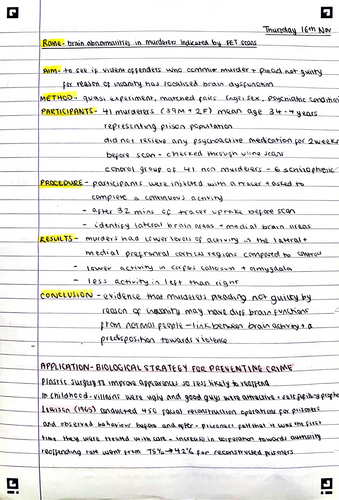 Thursday 16th Nov
Raine - brain abnormalities in murderers indicated by PET scans
AIM - to see if violent offenders who commit murder + plead not guilty
for reason of insanity has localised brain dysfunction
METHOD - quasi experiment, matched pairs (age, sex, psychiatric condition
PARTICIPANTS - 41 murderers (39M + 2F) mean age 34.4 years
representing prison population
did not recieve any psycoactive medication for 2 weeks
before scan - checked through urine scans
control group of 41 non murderers - 6 schizophrenic
PROCEDURE - participants were injected with a tracer + asked to
complete a continuous activity
- after 32 mins of tracer uptake before scan
- identify lateral brain areas + medial brain areas
RESULTS - murders had lower levels of activity in the lateral +
medial prefrontal cortical regions compared to controls
- lower activity in corpus callosum + amygdala
- less activity in left than right
CONCLUSION - evidence that murderers pleading not guilty by
reason of insanity may have diff brain functions
from normal people - link between brain activity + a
predisposition towards violence
APPLICATION - BIOLOGICAL STRATEGY FOR PREVENTING CRIME
Plastic surgery to improve appearance so less likely to reoffend
In childhood - villains were ugly and good guys were attractive - self fulfilling prophe
(1965) conducted 450 facial reconstruction operations for prisoners
and observed behaviour before and after - prisoners felt that it was the first
time they were treated with care - increase in cooperation towards authority
reoffending rate went from 75% → 42% for reconstructed prisoners